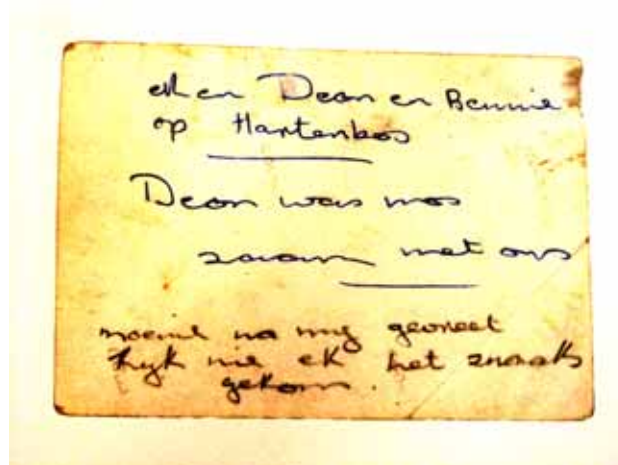 Ek en Deon en Bennie
op Hartenbos
Deon was mos
saam met ons
moenie na my gevreet
kyk nie ek het snaaks
gekom.